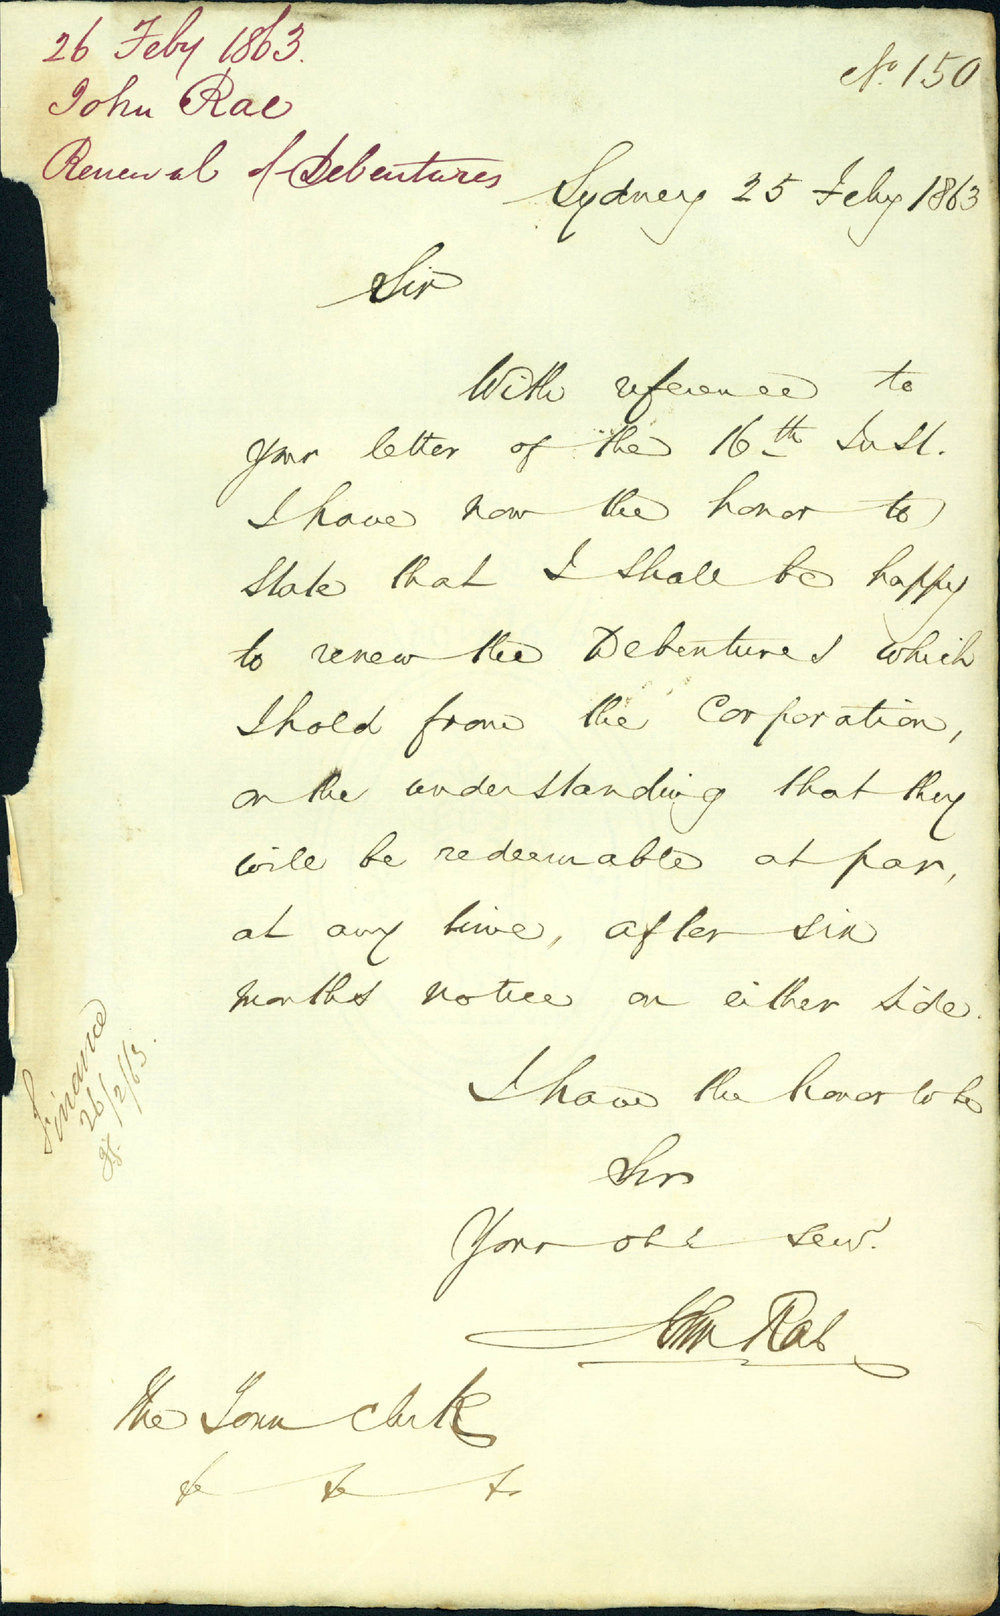 26 Feby 1863.
John Rae
Renewal of Debentures
No. 150
Sydney 25 Feby 1863
Sir
With reference to
your letter of the 16th Inst.
I have now the honor to
state that I shall be happy
to renew the Debentures which
I hold from the Corporation,
on the understanding that they
will be redeemable at par,
at any time, after six
months notice on either side.
I have the honor to be
Sir
Your obt serv.
John Rae
The Town Clerk
&c &c &c
Finance
26/2/63.